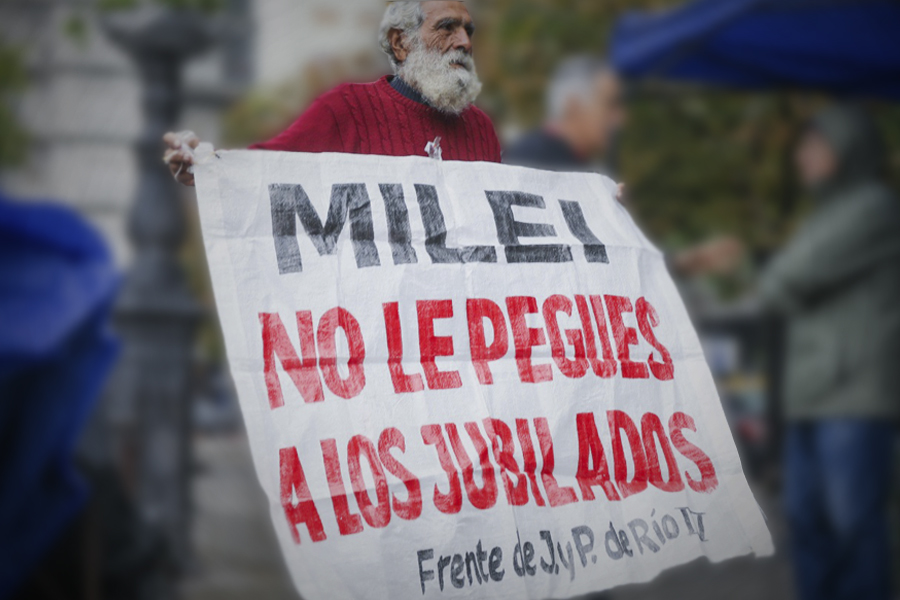 MILEI
NO LE PEGUES
A LOS JUBILADOS
Frente de J.y P. de Río IV